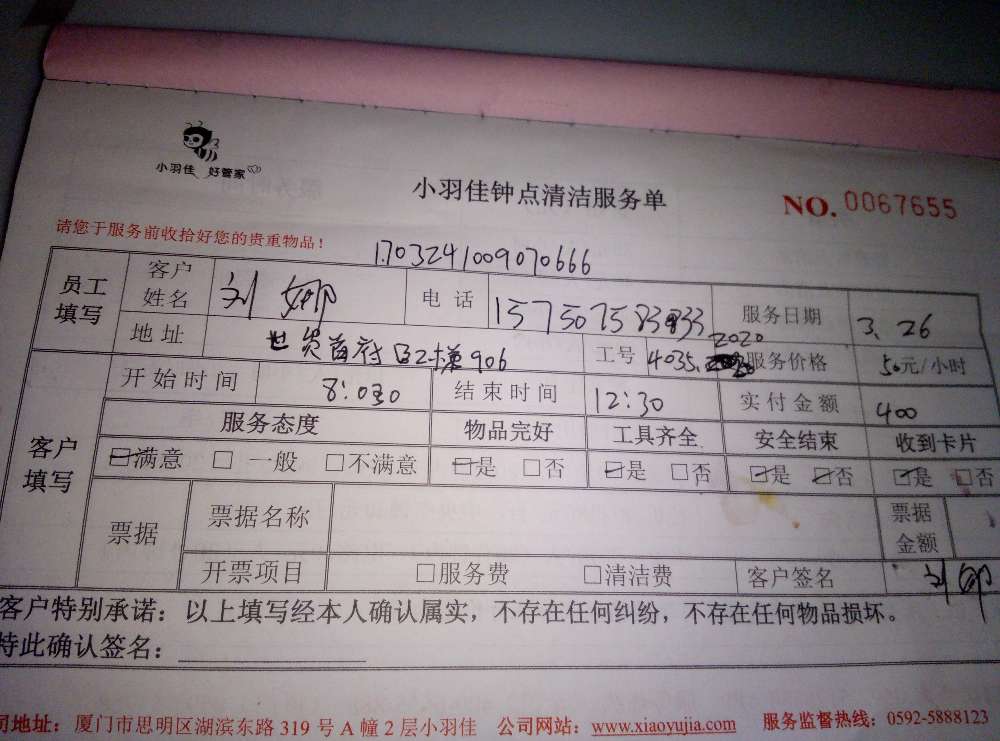 小羽佳 好管家
小羽佳钟点清洁服务单
NO. 0067655
请您于服务前收拾好您的贵重物品！
1703241009070666
员工填写 客户姓名 刘娜 电话 服务日期 3.26
地址 906 工号 4035. 2020 服务价格 50元/小时
客户填写 开始时间 8:030 结束时间 12:30 实付金额 400
服务态度 物品完好 工具齐全 安全结束 收到卡片
☑满意 □一般 □不满意 ☑是 □否 ☑是 □否 ☑是 ☑否 ☑是 □否
票据 票据名称 票据金额
开票项目 □服务费 □清洁费 客户签名 刘娜
客户特别承诺：以上填写经本人确认属实，不存在任何纠纷，不存在任何物品损坏。
特此确认签名：
司地址：厦门市思明区湖滨东路319号A幢2层小羽佳 公司网站：www.xiaoyujia.com 服务监督热线：0592-5888123